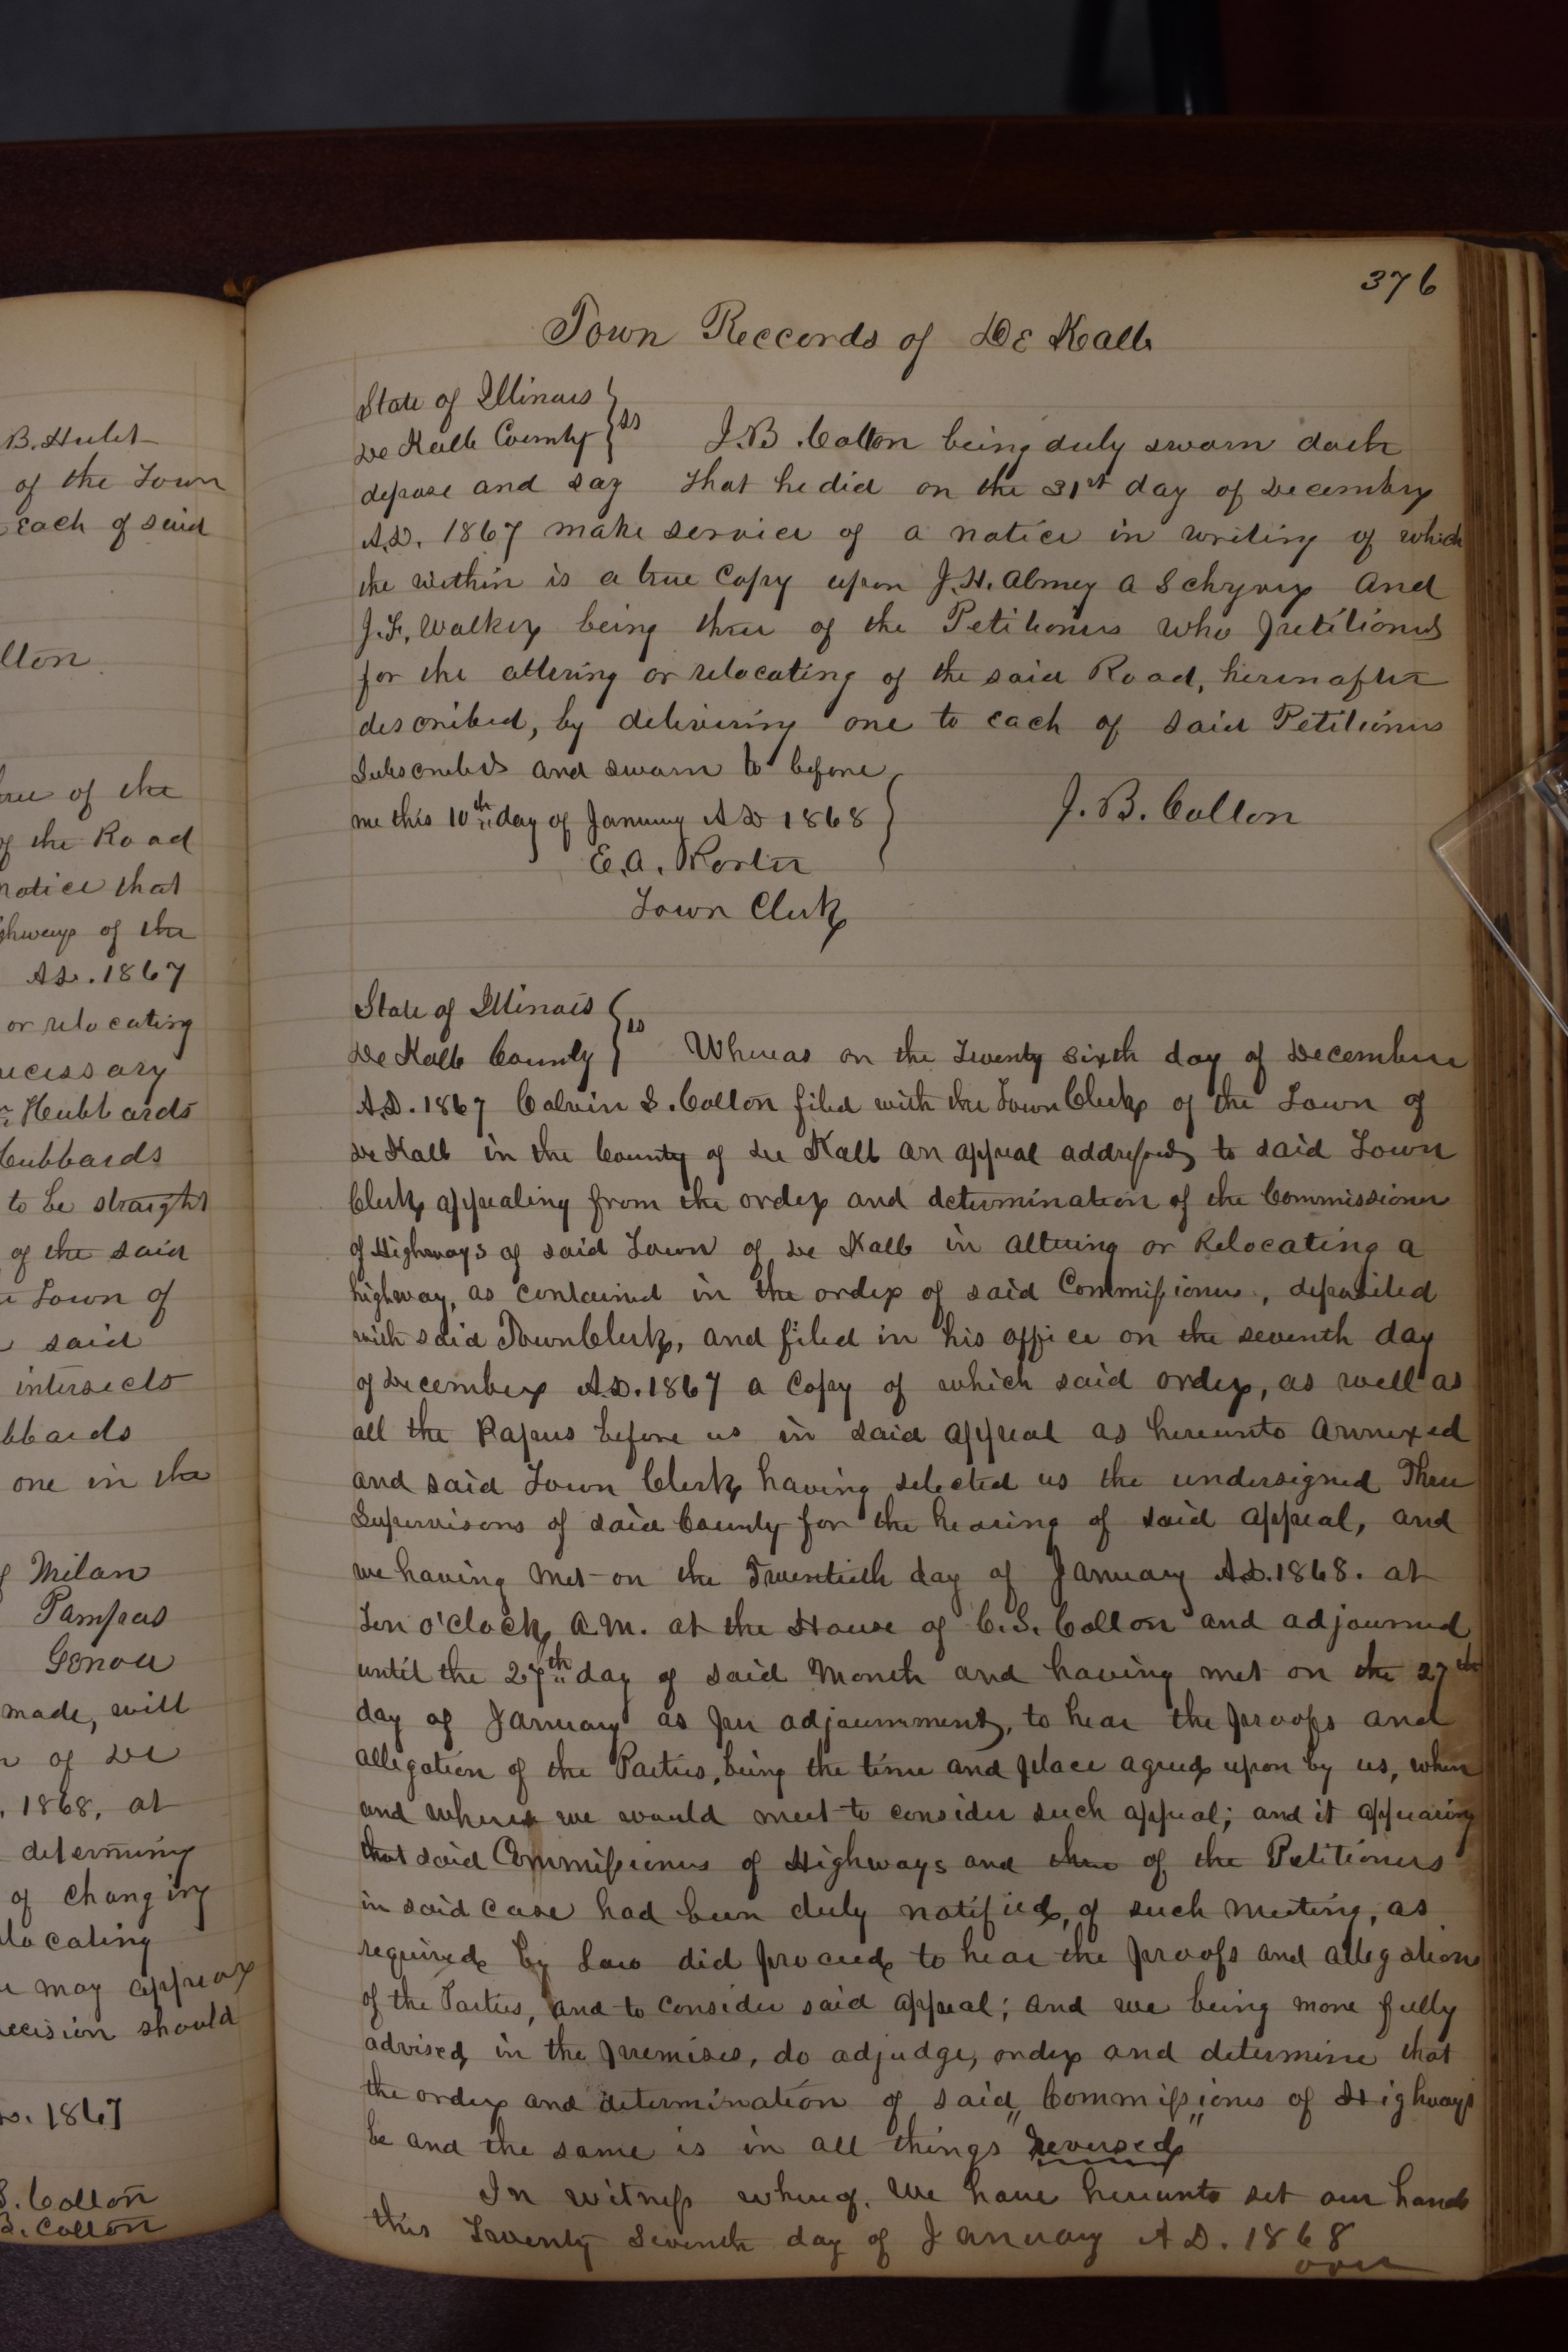 B. Hulet
of the Town
Each of said
lton
of the
of the Road
notice that
ghways of the
A.D. 1867
or relocating
necessary
Hubbards
Hubbards
to be straight
of the said
Town of
said
intersects
bbards
one in the
Milan
Pampas
Genoa
made, will
of De
1868, at
determing
of changing
locating
may appear
decision should
1867
S. Colton
B. Colton
376
Town Reccords of De Kalb
State of Illinois
De Kalb County } ss J.B. Colton being duly sworn doth
depose and say that he did on the 31st day of December
A.D. 1867 make service of a notice in writing of which
the within is a true Copy upon J.H. Almey A Schryver and
J.F. Walker being three of the Petitioners who petitioned
for the altering or relocating of the said Road, hereinafter
described, by delivering one to each of said Petitioners
Subscribed and sworn to before
me this 10th day of January A D 1868 } J.B. Colton
E.A. Porter
Town Clerk
State of Illinois
De Kalb County } ss Whereas on the Twenty Sixth day of December
A.D. 1867 Calvin S. Colton filed with the Town Clerk of the Town of
De Kalb in the County of De Kalb an appeal addressed to said Town
Clerk appealing from the order and determination of the Commissioner
of Highways of said Town of De Kalb in Altering or Relocating a
highway, as contained in the order of said Commissioners, deposited
with said Town Clerk, and filed in his office on the seventh day
of December A.D. 1867 a Copy of which said order, as well as
all the Papers before us in said appeal as hereunto annexed
and said Town Clerk having selected us the undersigned Three
Supervisors of said County for the hearing of said appeal, and
we having met on the Twentieth day of January A.D. 1868. at
Ten o'clock A.M. at the House of C.S. Colton and adjourned
until the 27th day of said Month and having met on the 27th
day of January as per adjournment, to hear the proofs and
allegation of the Parties, being the time and place agreed upon by us, when
and where we would meet to consider such appeal; and it appearing
that said Commissioners of Highways and three of the Petitioners
in said case had been duly notified, of such meeting, as
required by Law did proceed to hear the proofs and allegations
of the Parties, and to consider said appeal; and we being more fully
advised in the premises, do adjudge, order and determine that
the order and determination of said Commissioners of Highways
be and the same is in all things "reversed"
In witness whereof. We have hereunto set our hands
this Twenty Seventh day of January A D. 1868
over